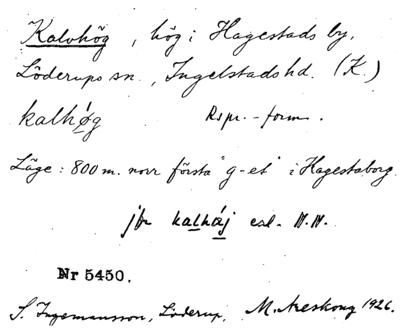 Kalvhög, hög i Hagestads by,
Löderups sn., Ingelstads hd. (K.)
kalhǿg Rspr.-form.
Läge: 800 m. norr första "g-et" i Hagestaborg.
jfr kalháj enl.
Nr 5450.
S. Ingemansson, Löderup, M. Areskoug 1926.